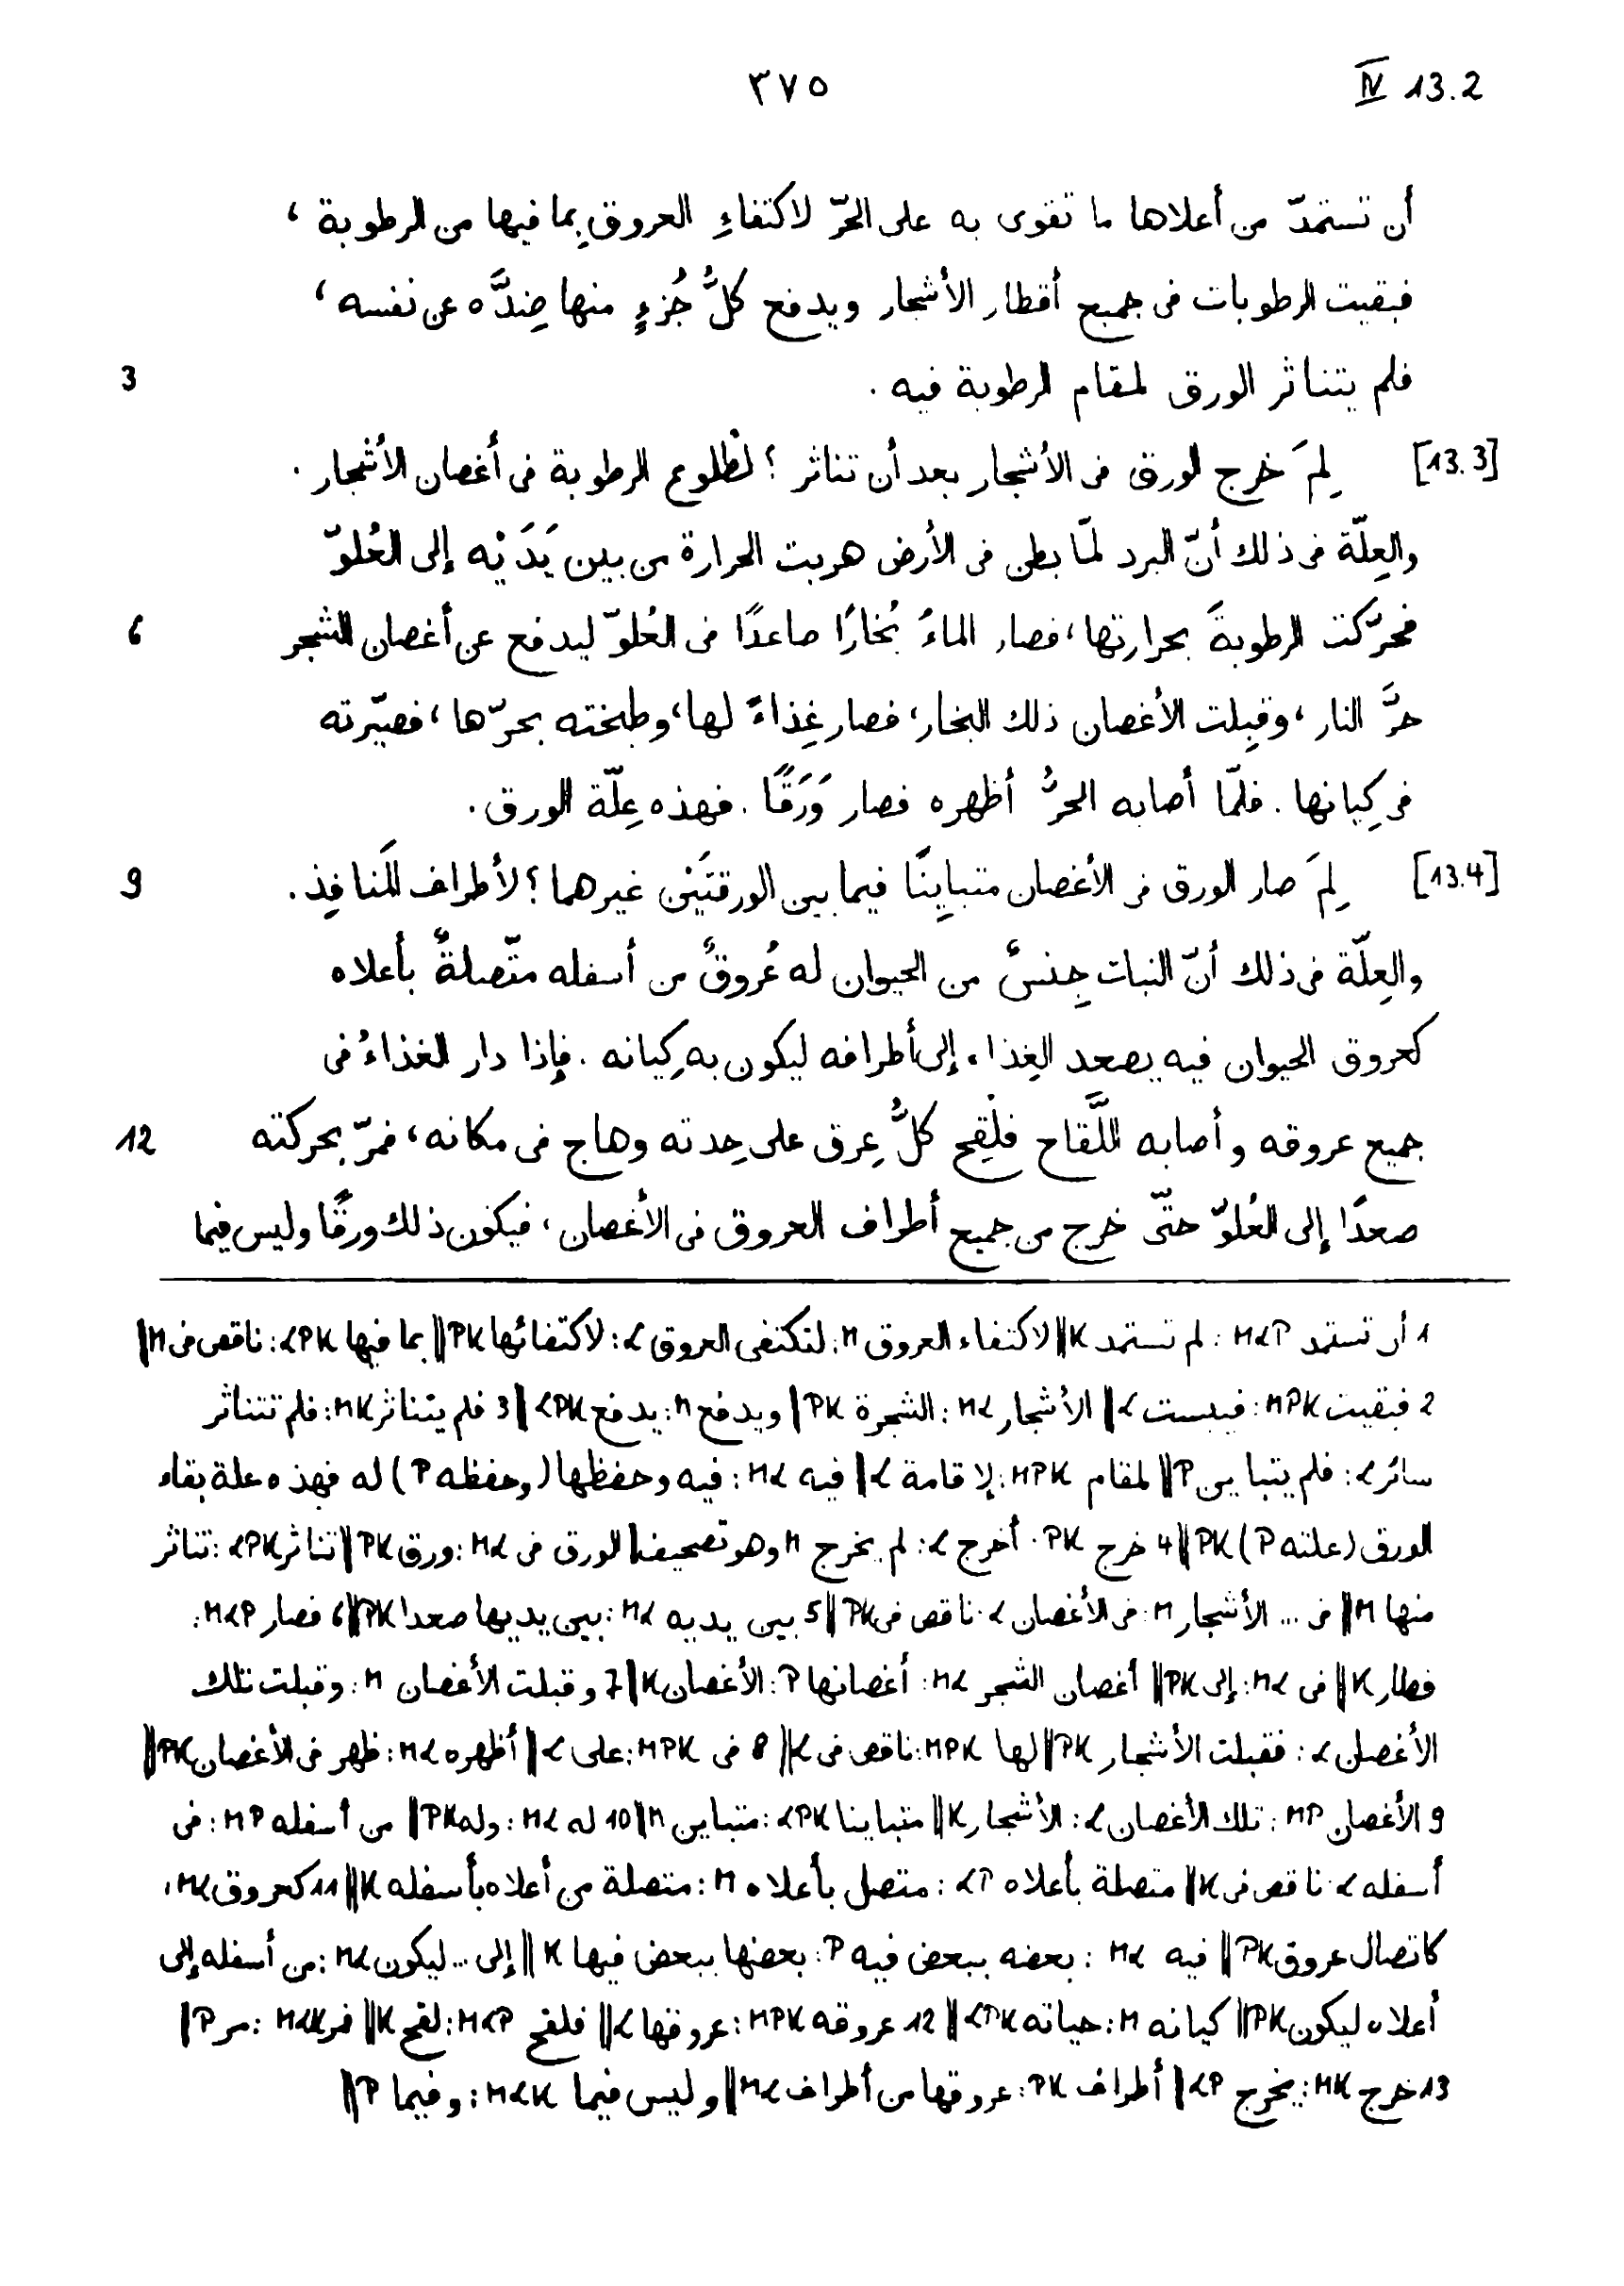 ٣٧٥ IV 13.2
أن تستمدّ من أعلاها ما تقوى به على الحرّ لاكتفاءِ العروق بِما فيها من الرطوبة ،
فبقيت الرطوبات فى جميع أقطار الأشجار ويدفع كلُّ جُزءٍ منها ضِدَّه عن نفسه ،
3 فلم يتناثر الورق لمقام الرطوبة فيه .
[13.3] لِمَ خرج الورق فى الأشجار بعد أن تناثر ؟ لطُلوع الرطوبة فى أغصان الأشجار .
والعِلّة فى ذلك أنّ البرد لمّا بطن فى الأرض هربت الحرارة من بين يَدَيْه إلى العُلوّ
6 فحرّكت الرطوبةَ بحرارتها ، فصار الماءُ بُخارًا صاعدًا فى العُلوّ ليدفع عن أغصان الشجر
حرَّ النار ، وقبِلت الأغصان ذلك البخار ، فصار غِذاءً لها ، وطبخته بحرّها ، فصيّرته
فى كِيانها . فلمّا أصابه الحرُّ أظهره فصار وَرَقًا . فهذه عِلّة الورق .
9 [13.4] لِمَ صار الورق فى الأغصان متبايِنًا فيما بين الورقتَيْن غيرهما ؟ لأطراف المَنافِذ .
والعِلّة فى ذلك أنّ النبات جِنسٌ من الحيوان له عُروقٌ من أسفله متّصلةٌ بأعلاه
كعروق الحيوان فيه يصعد الغِذاء إلى أطرافه ليكون به كِيانه . فإذا دار الغذاءُ فى
12 جميع عروقه وأصابه اللَّقاح فلُقِح كلُّ عِرق على حِدته وهاج فى مكانه ، فمرّ بحركته
صعدًا إلى العُلوّ حتّى خرج من جميع أطراف العروق فى الأغصان ، فيكون ذلك ورقًا وليس فيما
1 أن تستمد M<P : لم تستمد K || لاكتفاء العروق M : لتكتفى العروق < : لاكتفائها PK || بما فيها <PK : ناقص فى M ||
2 فبقيت MPK : فيبست < || الأشجار M< : الشجرة PK || ويدفع M : يدفع <PK || 3 فلم يتناثر MK : فلم تتناثر
سائر < : فلم يتباين P || لمقام MPK : لإقامة < || فيه M< : فيه وحفظها (وحفظه P) له فهذه علة بقاء
الورق (علته P) PK || 4 خرج PK : أخرج < : لم يخرج M وهو تصحيف || الورق فى M< : ورق PK || تناثر <PK : تناثر
منها M || فى ... الأشجار M : فى الأغصان < : ناقص فى PK || 5 بين يديه M< : بين يديها صعدا PK || 6 فصار M<P :
فطار K || فى M< : إلى PK || أغصان الشجر M< : أغصانها P : الأغصان K || 7 وقبلت الأغصان M : وقبلت تلك
الأغصان < : فقبلت الأشجار PK || لها MPK : ناقص فى < || 8 فى MPK : على < || أظهره M< : ظهر فى الأغصان PK ||
9 الأغصان MP : تلك الأغصان < : الأشجار K || متباينا <PK : متباين M || 10 له M< : وله PK || من أسفله MP : فى
أسفله < : ناقص فى K || متصلة بأعلاه <P : متصل بأعلاه M : متصلة من أعلاه بأسفله K || 11 كعروق M< :
كاتصال عروق PK || فيه M< : بعضه ببعض فيه P : بعضها ببعض فيها K || إلى ... ليكون M< : من أسفله إلى
أعلاه ليكون PK || كيانه M : حياته <PK || 12 عروقه MPK : عروقها < || فلقح M<P : لقح K || فمر M<K : مر P ||
13 خرج MK : يخرج <P || أطراف PK : عروقها من أطراف M< || وليس فيما M<K : وفيما P ||